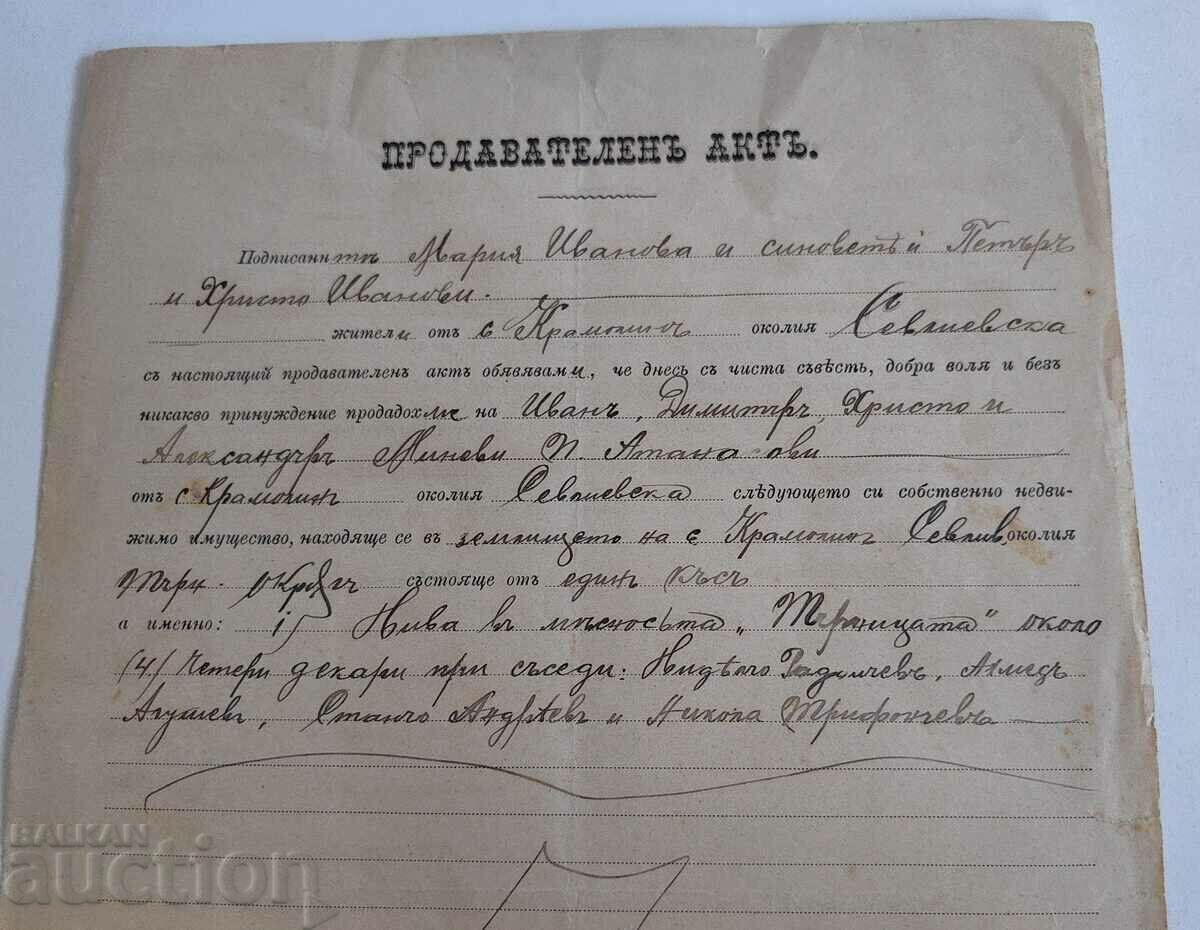 ПРОДАВАТЕЛЕНЪ АКТЪ.
Подписаннитѣ Мария Иванова и синоветѣ ѝ Петъръ
и Христо Иванови.
жители отъ с Крамолинъ околия Севлиевска
съ настоящий продавателенъ актъ обявявами, че днесь съ чиста съвѣсть, добра воля и безъ
никакво принуждение продадохме на Иванъ, Димитъръ, Христо и
Александъръ Миневи П. Атанасови
отъ с. Крамолинъ околия Севлиевска слѣдующето си собственно недви-
жимо имущество, находяще се въ землището на с Крамолинъ Севлив. околия
Търн. окрѫгъ състояще отъ единъ късъ
а именно: 1) Нива въ мѣсностьта „Търницата" около
(4) Четери декари при съседи: Недѣлчо, Ахмедъ
Агушевъ, Станчо Андрѣевъ и Никола Трифончевъ
BALKAN
auction